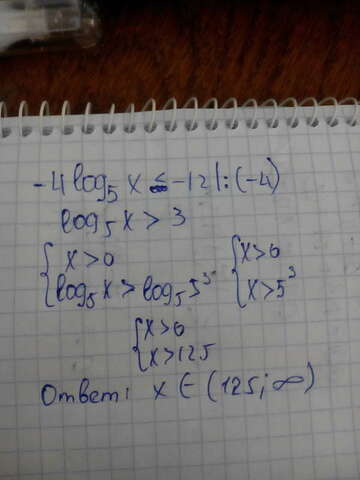 -4log₅x ≤ -12 |:(-4)
log₅x > 3
{x>0 {x>0
{log₅x > log₅5³ {x>5³
{x>0
{x>125
Ответ: x ∈ (125; ∞)